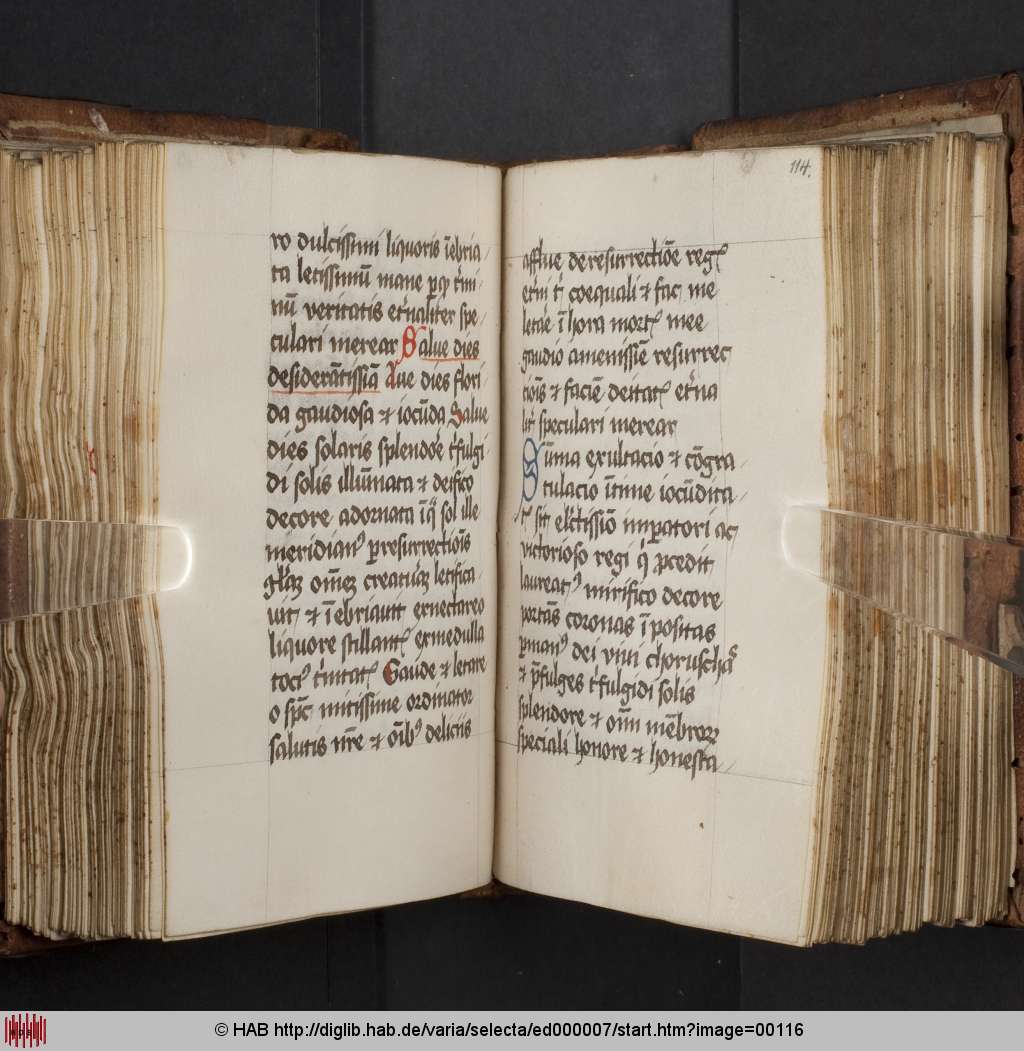 ro dulcissimi liquoris īebria
ta letissimū mane
nū veritatis et̓naliter spe
culari merear Salue dies
desiderātissīa Aue dies flori
da gaudiosa et iocūda Salue
dies solaris splendore t̓fulgi
di solis illūnata et deifico
decore adornata sol ille
meridian⁹ presurrectiōis
creatur letifica
uit et īebriauit ex nectareo
liquore stillant ex medulla
toci⁹ t̓nitat Gaude et letare
o mitissime ordinator
salutis nr̄e et oīb⁹ deliciis
114.
afflue de resurrectiōe reg
et̓ni coequali et fac me
letāe ī hora mort mee
gaudio amenissīe resurrec
ciōis et faciē deitat et̓na
lit̓ speculari merear
Sūma exultacio et cōgra
tulacio ītime iocūdita
sit elc̄tissīo imꝑatori ac
victorioso regi qͥ ꝓcedit
laureat⁹ mirifico decore
portās coronas īpositas
ꝑman⁹ dei viui
et p̄fulges t̓fulgidi solis
splendore et mēbror
speciali honore et honesta
© HAB http://diglib.hab.de/varia/selecta/ed000007/start.htm?image=00116